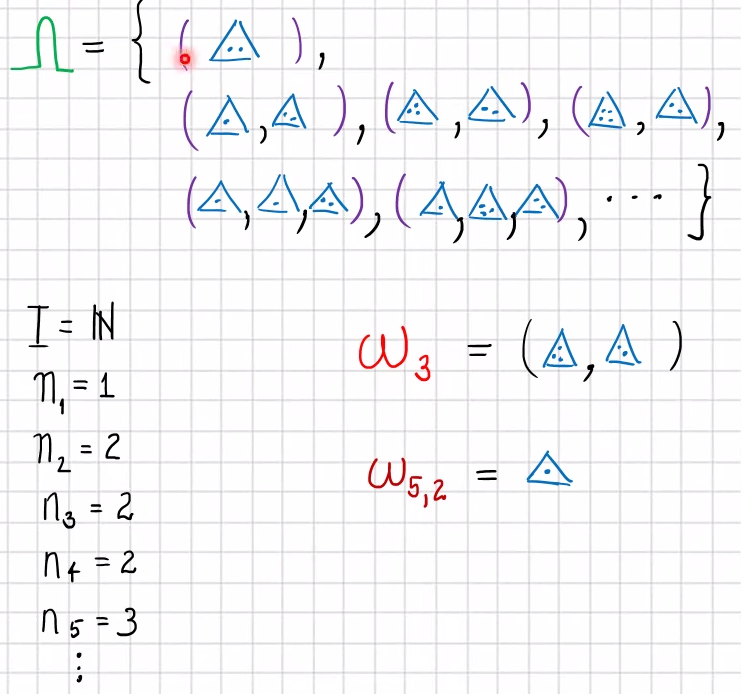 Ω = { ( △ ),
( △ , △ ) , ( △ , △ ) , ( △ , △ ) ,
( △ , △ , △ ) , ( △ , △ , △ ) , ... }
I = ℕ
n₁ = 1
n₂ = 2
n₃ = 2
n₄ = 2
n₅ = 3
⋮
ω₃ = ( △ , △ )
ω₅,₂ = △